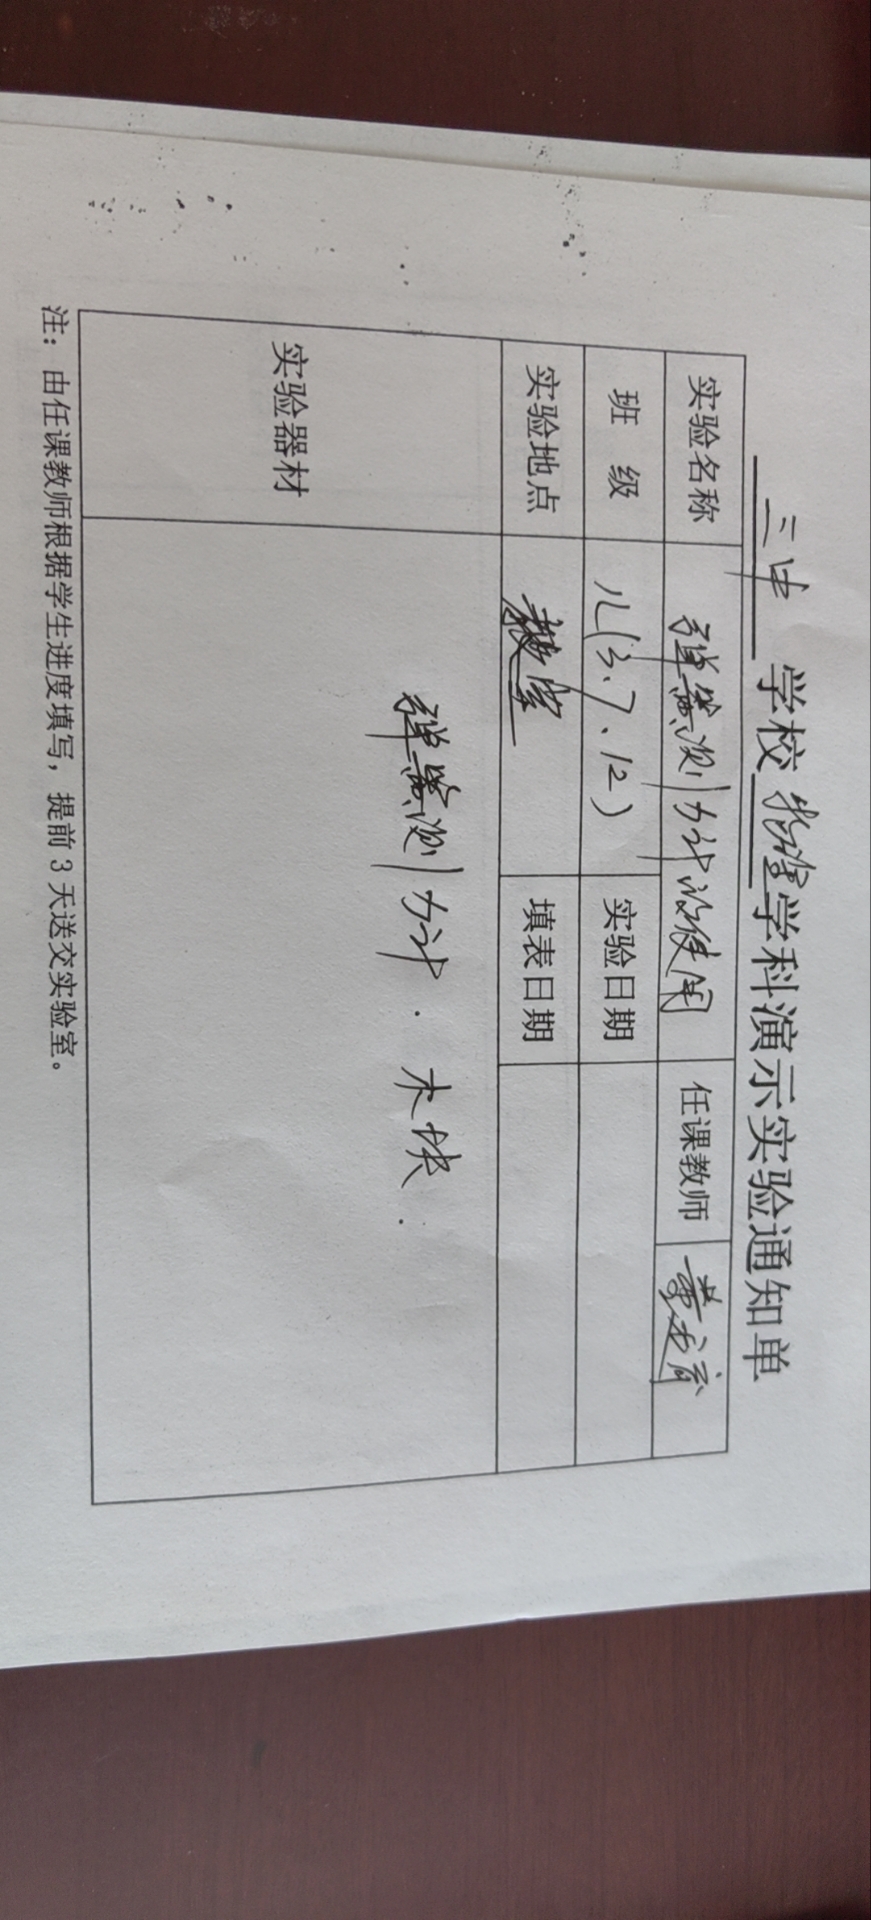 三中 学校 物理 学科演示实验通知单
实验名称 弹簧测力计的使用 任课教师
班 级 八(3、7、12) 实验日期
实验地点 教室 填表日期
实验器材 弹簧测力计. 木块.
注：由任课教师根据学生进度填写，提前3天送交实验室。